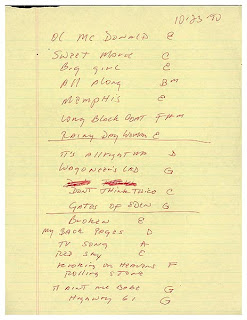 10/23 90
OL MC DONALD E
SWEET MARIE C
BIG GIRL E
ALL Along Bm
MEMPHIS E
LONG BLACK COAT F#m
RAINY DAY WOMEN E
IT'S ALLRIGHT MA D
WAGONEER'S LAD G
DONT THINK TWICE C
GATES OF EDEN G
BROKEN E
MY BACK PAGES D
TV SONG A
RED SKY E
KNOCKIN ON HEAVENS F
ROLLING STONE
IT AINT ME BABE G
HIGHWAY 61 G